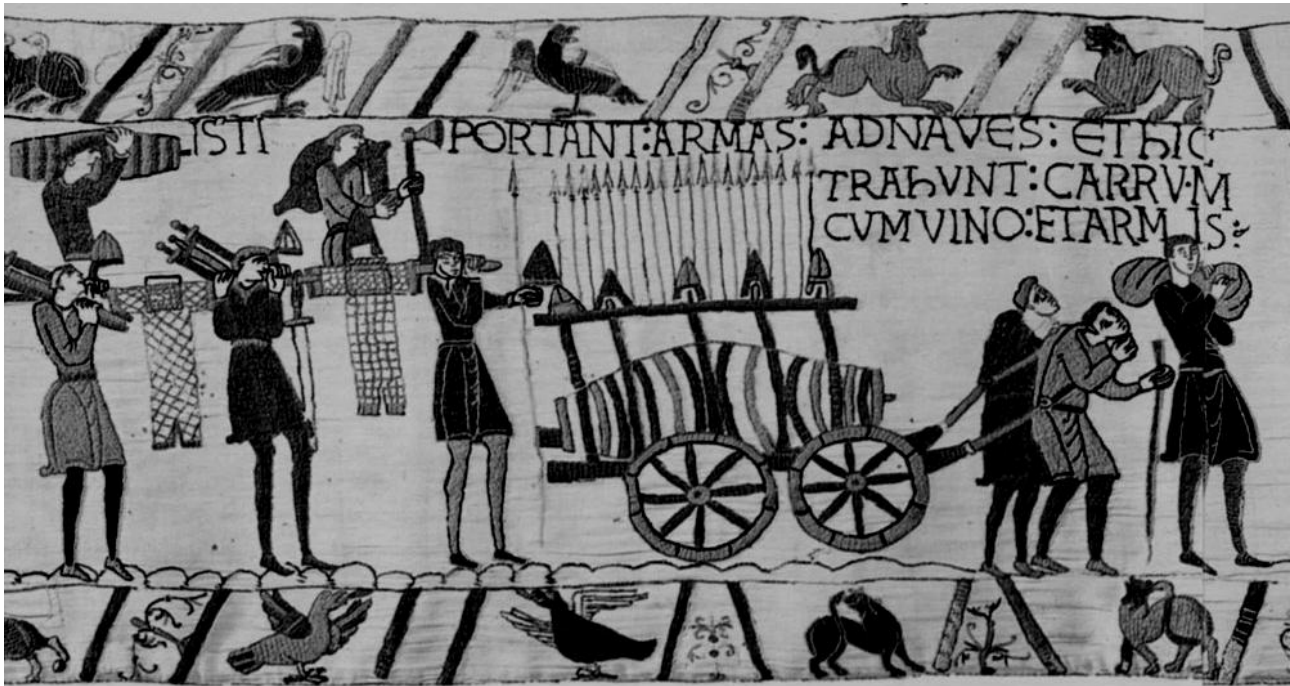 ISTI PORTANT:ARMAS: ADNAVES: EThIC
TRAhUNT:CARRV·M
CVMVINO:ETARM IS: